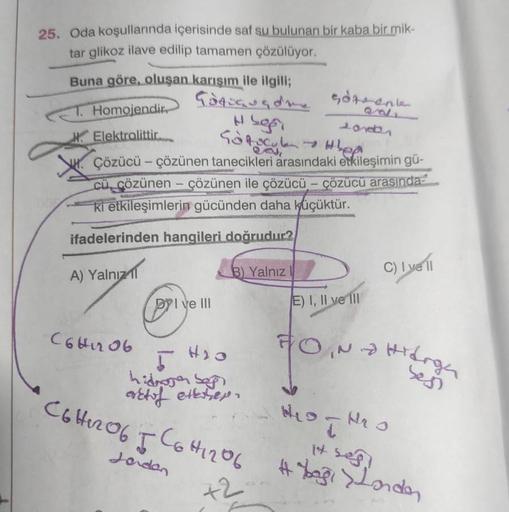 25. Oda koşullarında içerisinde saf su bulunan bir kaba bir mik-
tar glikoz ilave edilip tamamen çözülüyor.
Buna göre, oluşan karışım ile ilgili;
I. Homojendir.
H bağı
London
II. Elektrolittir.
→ H bağı
III. Çözücü – çözünen tanecikleri arasındaki etkileşimin gü-
cü, çözünen – çözünen ile çözücü – çözücü arasında-
ki etkileşimlerin gücünden daha küçüktür.
ifadelerinden hangileri doğrudur?
A) Yalnız II
B) Yalnız I
C) I ve II
D) I ve III
E) I, II ve III
C6H12O6 H2O
hidrojen bağı
aktif etkileşim
F, O, N → Hidrojen
bağı
C6H12O6 C6H12O6
London
H2O – H2O
H bağı
H bağı > London
+2